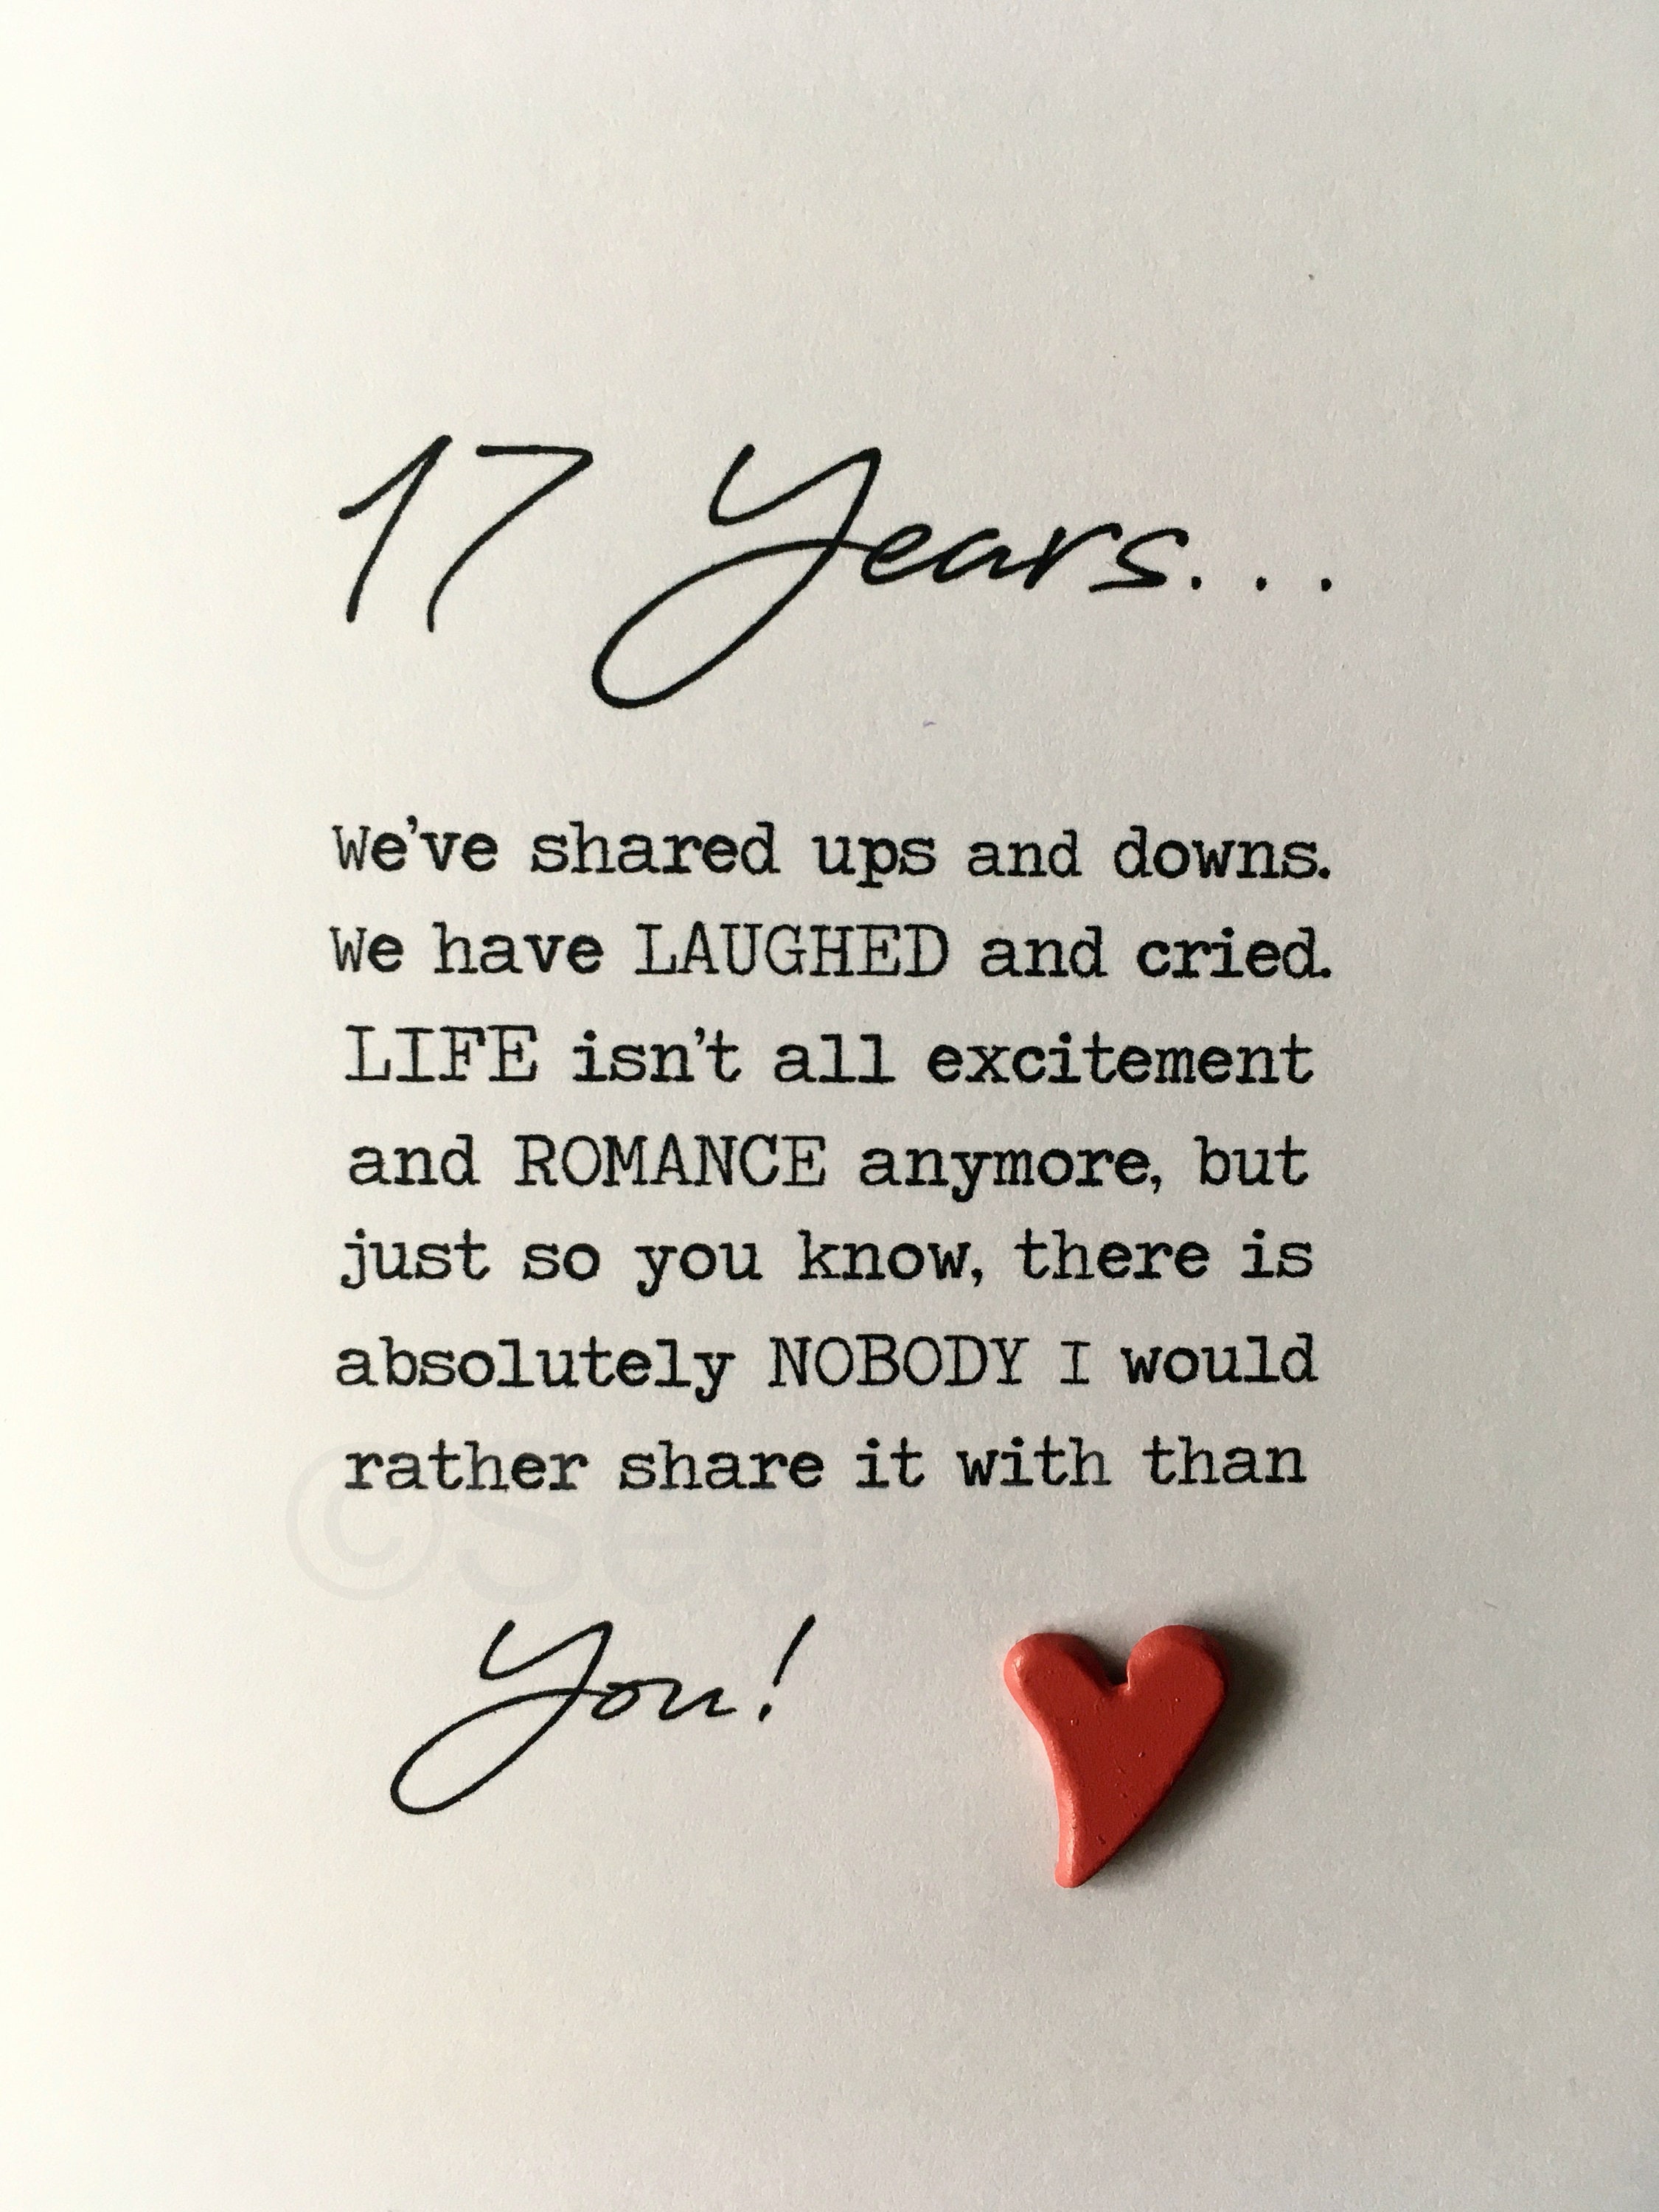 17 Years...
We've shared ups and downs.
We have LAUGHED and cried.
LIFE isn't all excitement
and ROMANCE anymore, but
just so you know, there is
absolutely NOBODY I would
rather share it with than
©See
You!